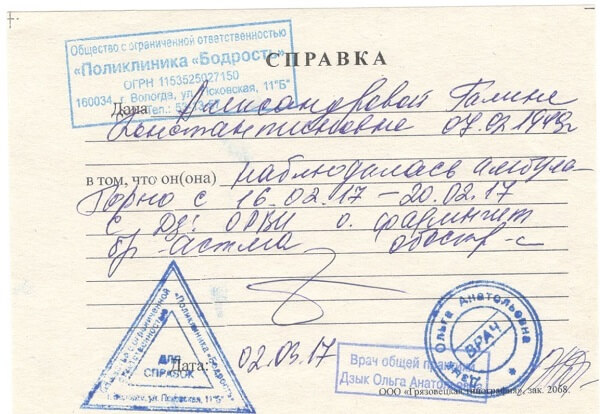 Общество с ограниченной ответственностью
«Поликлиника «Бодрость»
ОГРН 1153525027150
160034, г. Вологда, ул. Псковская, 11"Б"
Тел.:
СПРАВКА
Дана Александровой Галине
Константиновне 07.02.1949г
в том, что он(она) наблюдалась амбула-
торно с 16.02.17 – 20.02.17
с Ds: ОРВИ о. фарингит
бр. астма обостр-е
"Поликлиника "Бодрость"
ДЛЯ
СПРАВОК
г. Вологда, ул. Псковская, 11 "Б"
Дата: 02.03.17
Ольга Анатольевна
ВРАЧ
Дзык
Врач общей практики
Дзык Ольга Анатольевна
ООО «Грязовецкая типография», зак. 2068.